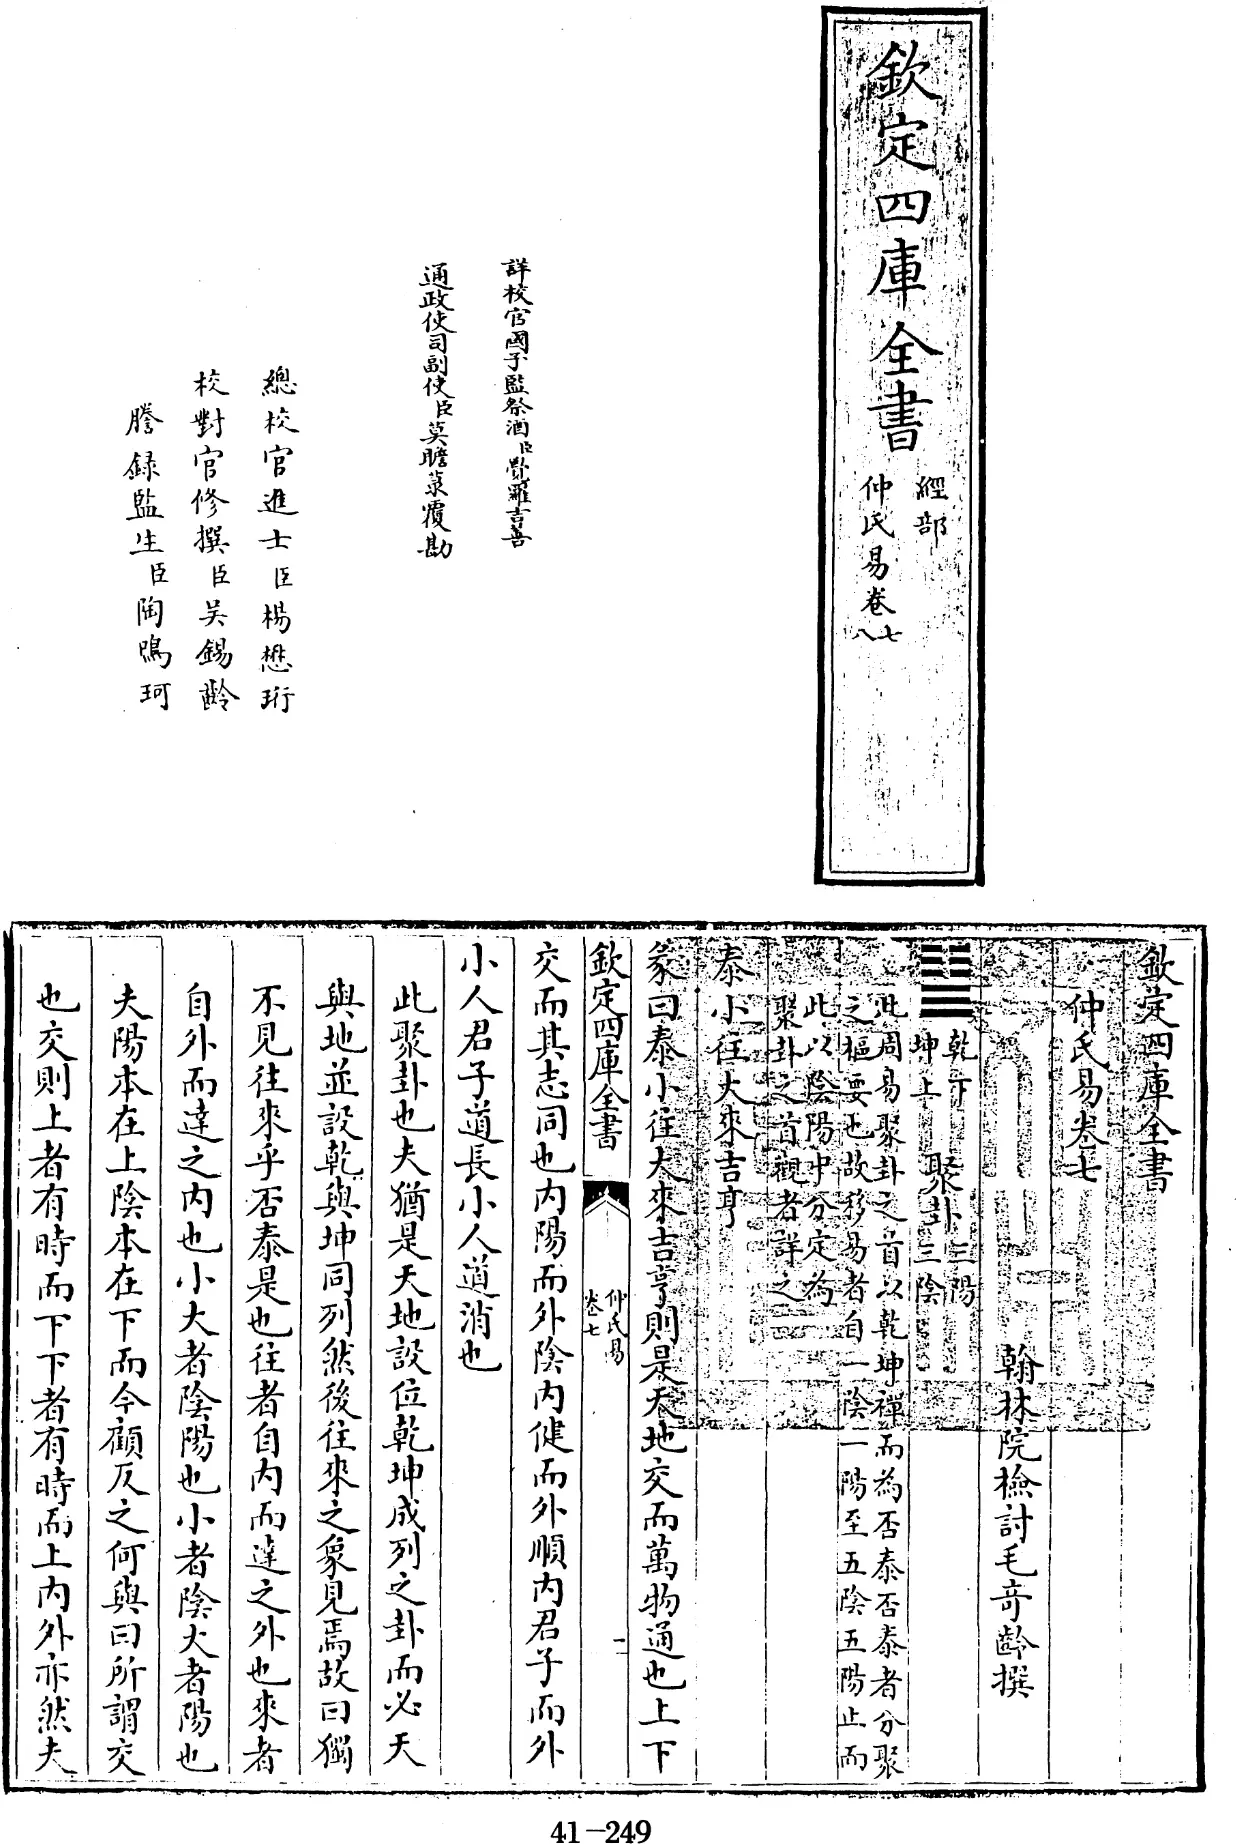 欽定四庫全書
經部
仲氏易卷七
八
詳校官國子監祭酒臣覺羅吉善
通政使司副使臣莫瞻菉覆勘
總校官進士臣楊懋珩
校對官修撰臣吴錫齡
謄録監生臣陶鳴珂
欽定四庫全書
仲氏易卷七
翰林院檢討毛奇齡撰
乾下
坤上
聚卦
三陽
三陰
此周易聚卦之首以乾坤禪而為否泰否泰者分聚
之樞要也故移易者自一陰一陽至五陰五陽止而
此以陰陽中分定為
聚卦之首觀者詳之
泰小往大來吉亨
彖曰泰小往大來吉亨則是天地交而萬物通也上下
欽定四庫全書
仲氏易
卷七
二
交而其志同也内陽而外陰内健而外順内君子而外
小人君子道長小人道消也
此聚卦也夫猶是天地設位乾坤成列之卦而必天
與地並設乾與坤同列然後往來之象見焉故曰獨
不見往來乎否泰是也往者自内而達之外也來者
自外而達之内也小大者陰陽也小者陰大者陽也
夫陽本在上陰本在下而今顧反之何與曰所謂交
也交則上者有時而下下者有時而上内外亦然夫
41-249